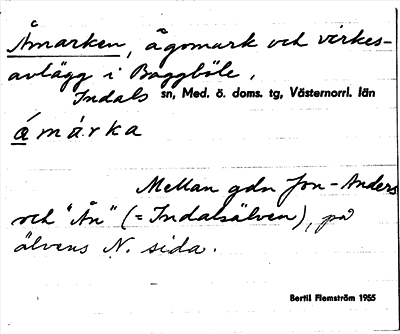 Åmarken, ägomark och virkes-
avlägg i Baggböle,
Indals sn, Med. ö. doms. tg, Västernorrl. län
ámárka
Mellan gdn Jon-Anders
och "Ån" (= Indalsälven), på
älvens N. sida.
Bertil Flemström 1955